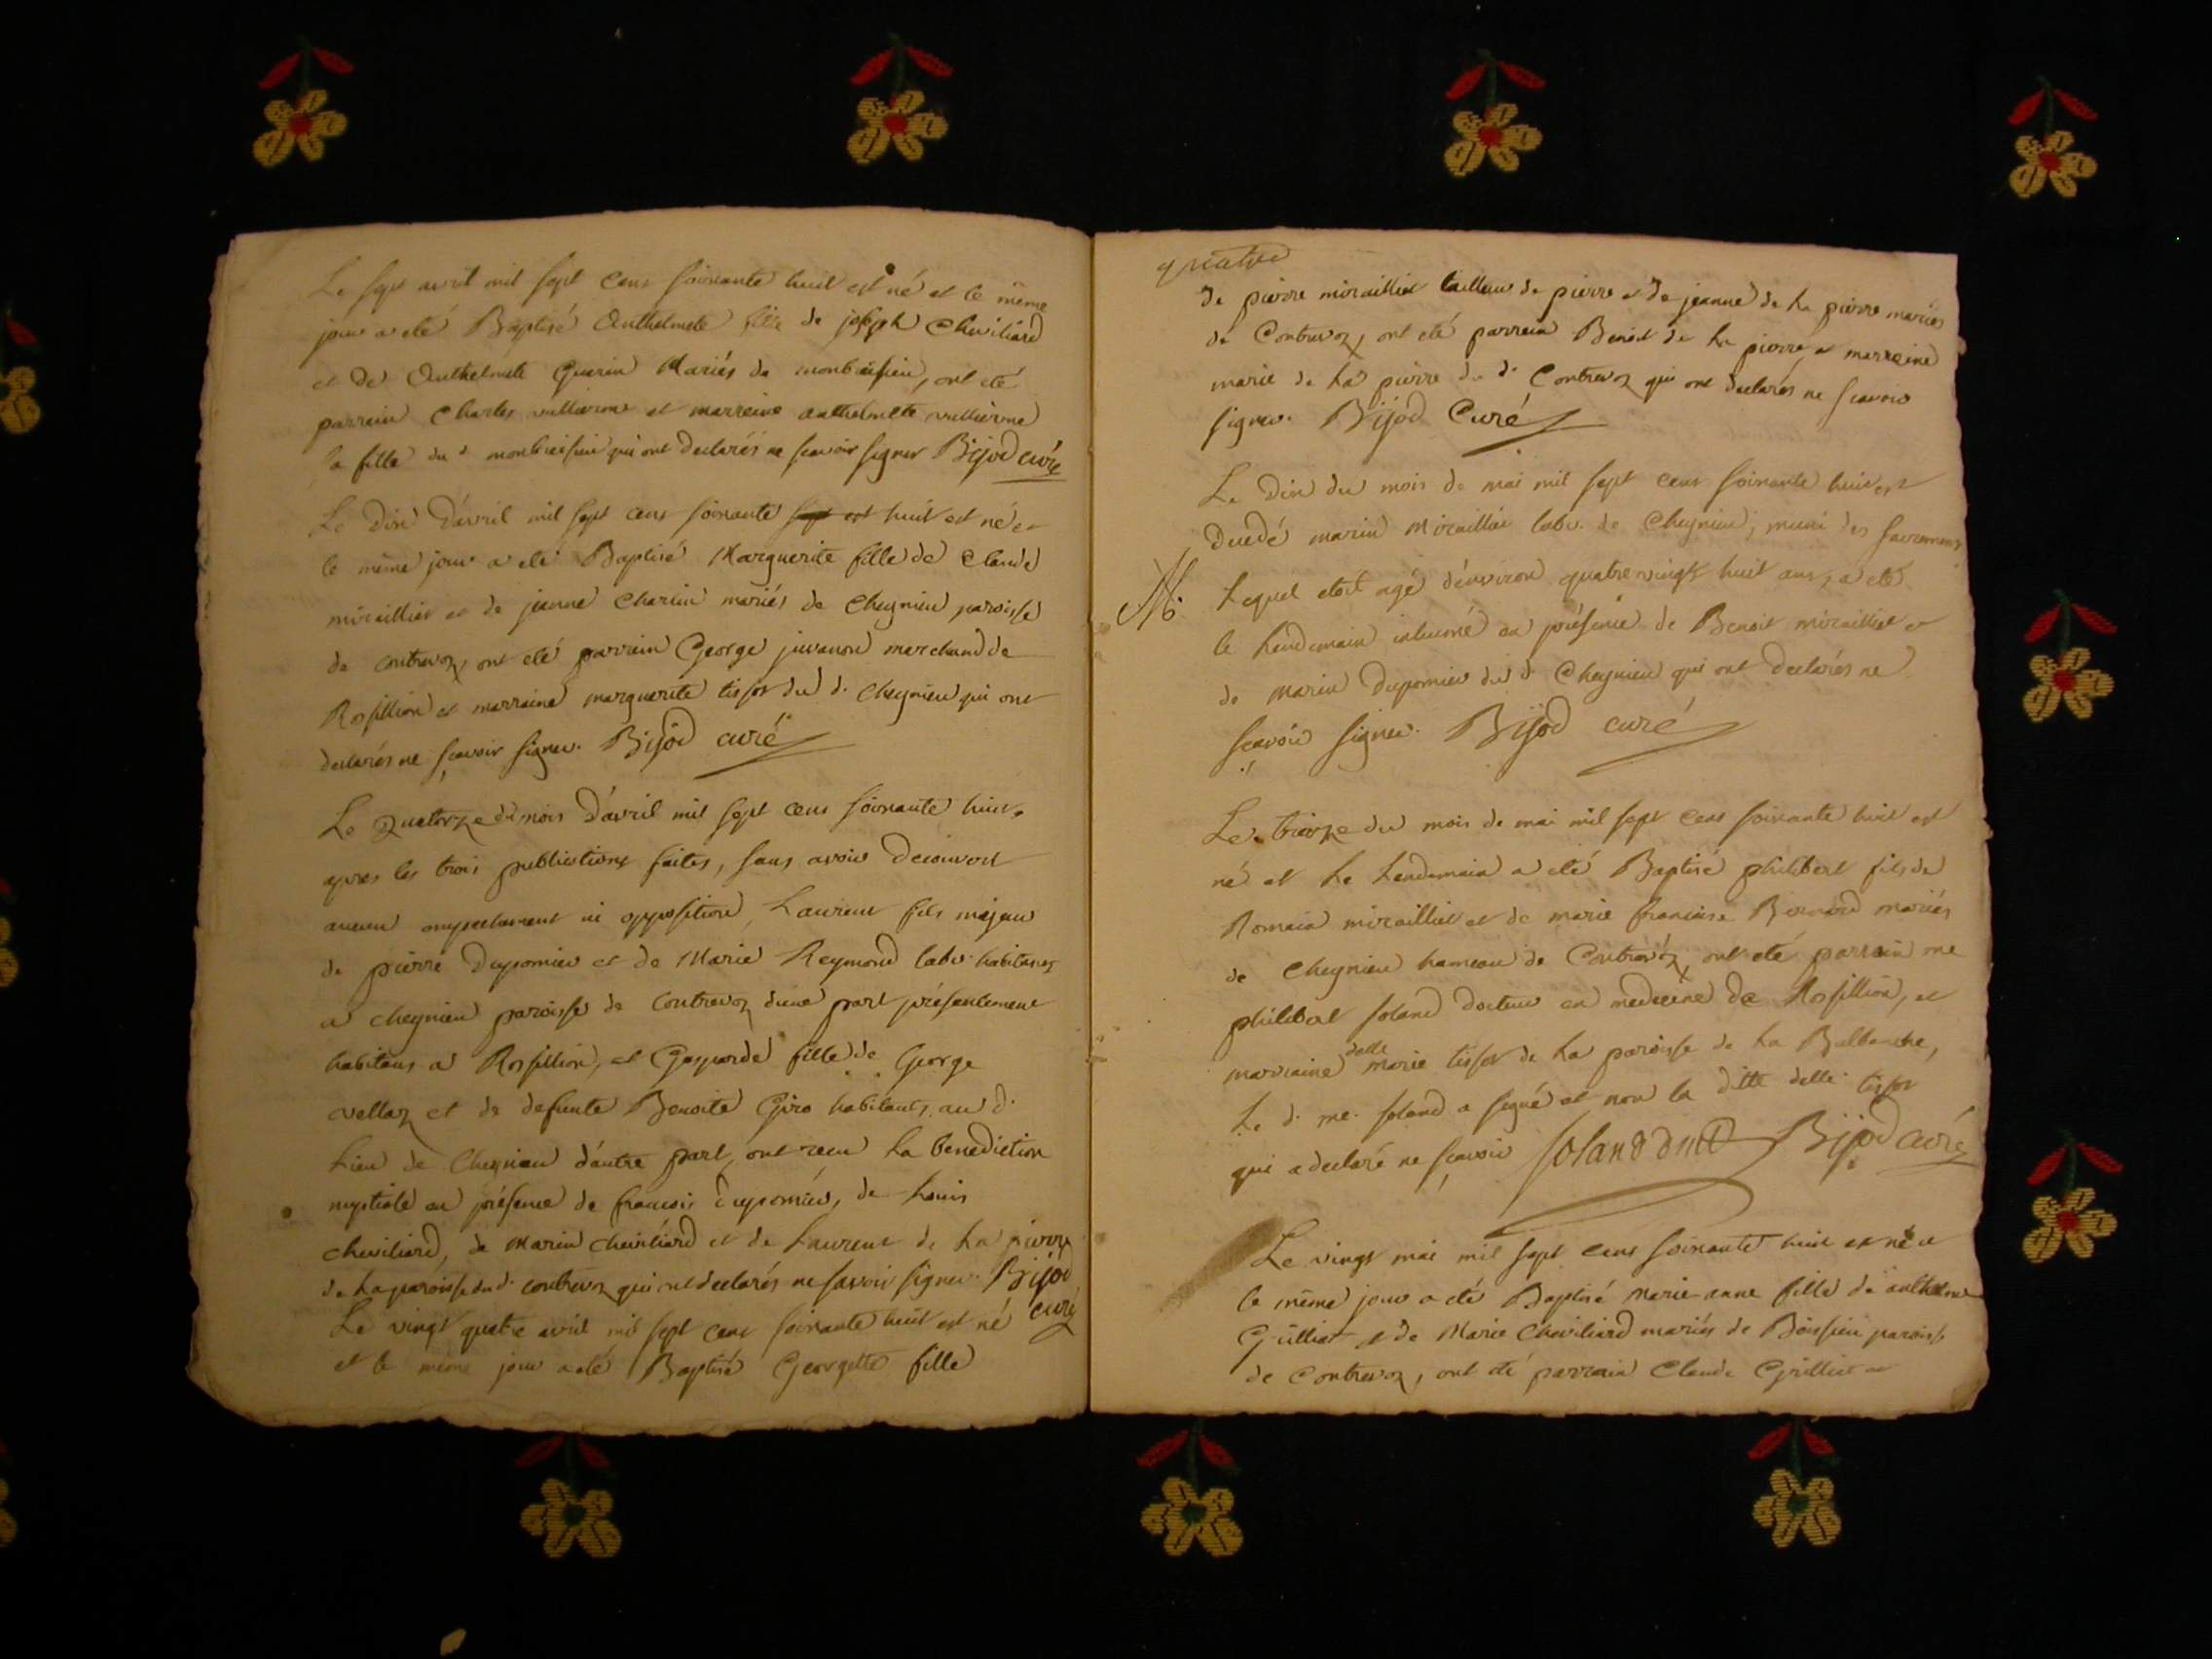 Le sept avril mil sept cens soixante huit est né et le même
jour a eté Baptisé Anthelmete fille de joseph Chevillard
et de Anthelmete Guerin Mariés de montbrisieu, ont eté
parrain Charles vullierme et marreine anthelmete vullierme
sa fille du d montbrisieu qui ont declarés ne scavoir signer Bijod curé
Le dix d'avril mil sept cens soixante sept est huit est né et
le même jour a eté Baptisé Marguerite fille de Claude
miraillier et de jeanne Charlin mariés de Cheynieu paroisse
de contrevoz, ont eté parrain George juvanon marchand de
Rossillion et marraine marguerite tissot du d. Cheynieu qui ont
declarés ne scavoir signer. Bijod curé
Le quatorze du mois d'avril mil sept cens soixante huit.
apres les trois publications faites, sans avoir decouvert
aucun empechement ni opposition, Laurent fils majeur
de pierre Dupomier et de Marie Reymond labr. habitants
a cheynieu paroisse de contrevoz d'une part présentement
habitans a Rossillion, et Gasparde fille de George
vellaz et de defunte Benoite Giro habitants au d.
Lieu de Cheynieu d'autre part, ont recu la benediction
nuptiale en présence de francois dupomier, de Louis
chevillard, de Marin chevillard et de Laurent de La pierre
de La paroisse du d. contrevoz qui ont declarés ne savoir signer. Bijod
curé
Le vingt quatre avril mil sept cens soixante huit est né
et le même jour a eté Baptisé Georgette fille
quatre
de pierre miraillier tailleur de pierre et de jeanne de La pierre mariés
de Contrevoz, ont eté parrain Benoit de La pierre et marreine
marie de La pierre du d. Contrevoz qui ont declarés ne scavoir
signer. Bijod Curé
Le Dix du mois de mai mil sept cens soixante huit est
decedé marin Miraillier labr. de Cheynieu, muni des sacremens
Lequel etoit agé d'environ quatre vingt huit ans, a eté
le Lendemain inhumé en présence de Benoit miraillier et
de Marin Dupomier du d. Cheynieu qui ont declarés ne
scavoir signer. Bijod curé
Le treize du mois de mai mil sept cens soixante huit est
né et Le Lendemain a eté Baptisé philibert fils de
Romain miraillier et de marie francoise Bernard mariés
de Cheynieu hameau de Contrevoz, ont eté parrain me
philibert soland docteur en medecine de Rossillion, et
marraine delle marie tissot de La paroisse de La Balbanche,
Le d. me. soland a signé et non la ditte delle. tissot
qui a declaré ne scavoir soland dm Bijod curé
Le vingt mai mil sept cens soixante huit est né et
le même jour a eté Baptisé Marie anne fille de anthelme
Grilliet et de Marie Chevillard mariés de Boissieu paroisse
de Contrevoz, ont eté parrain Claude Grilliet et